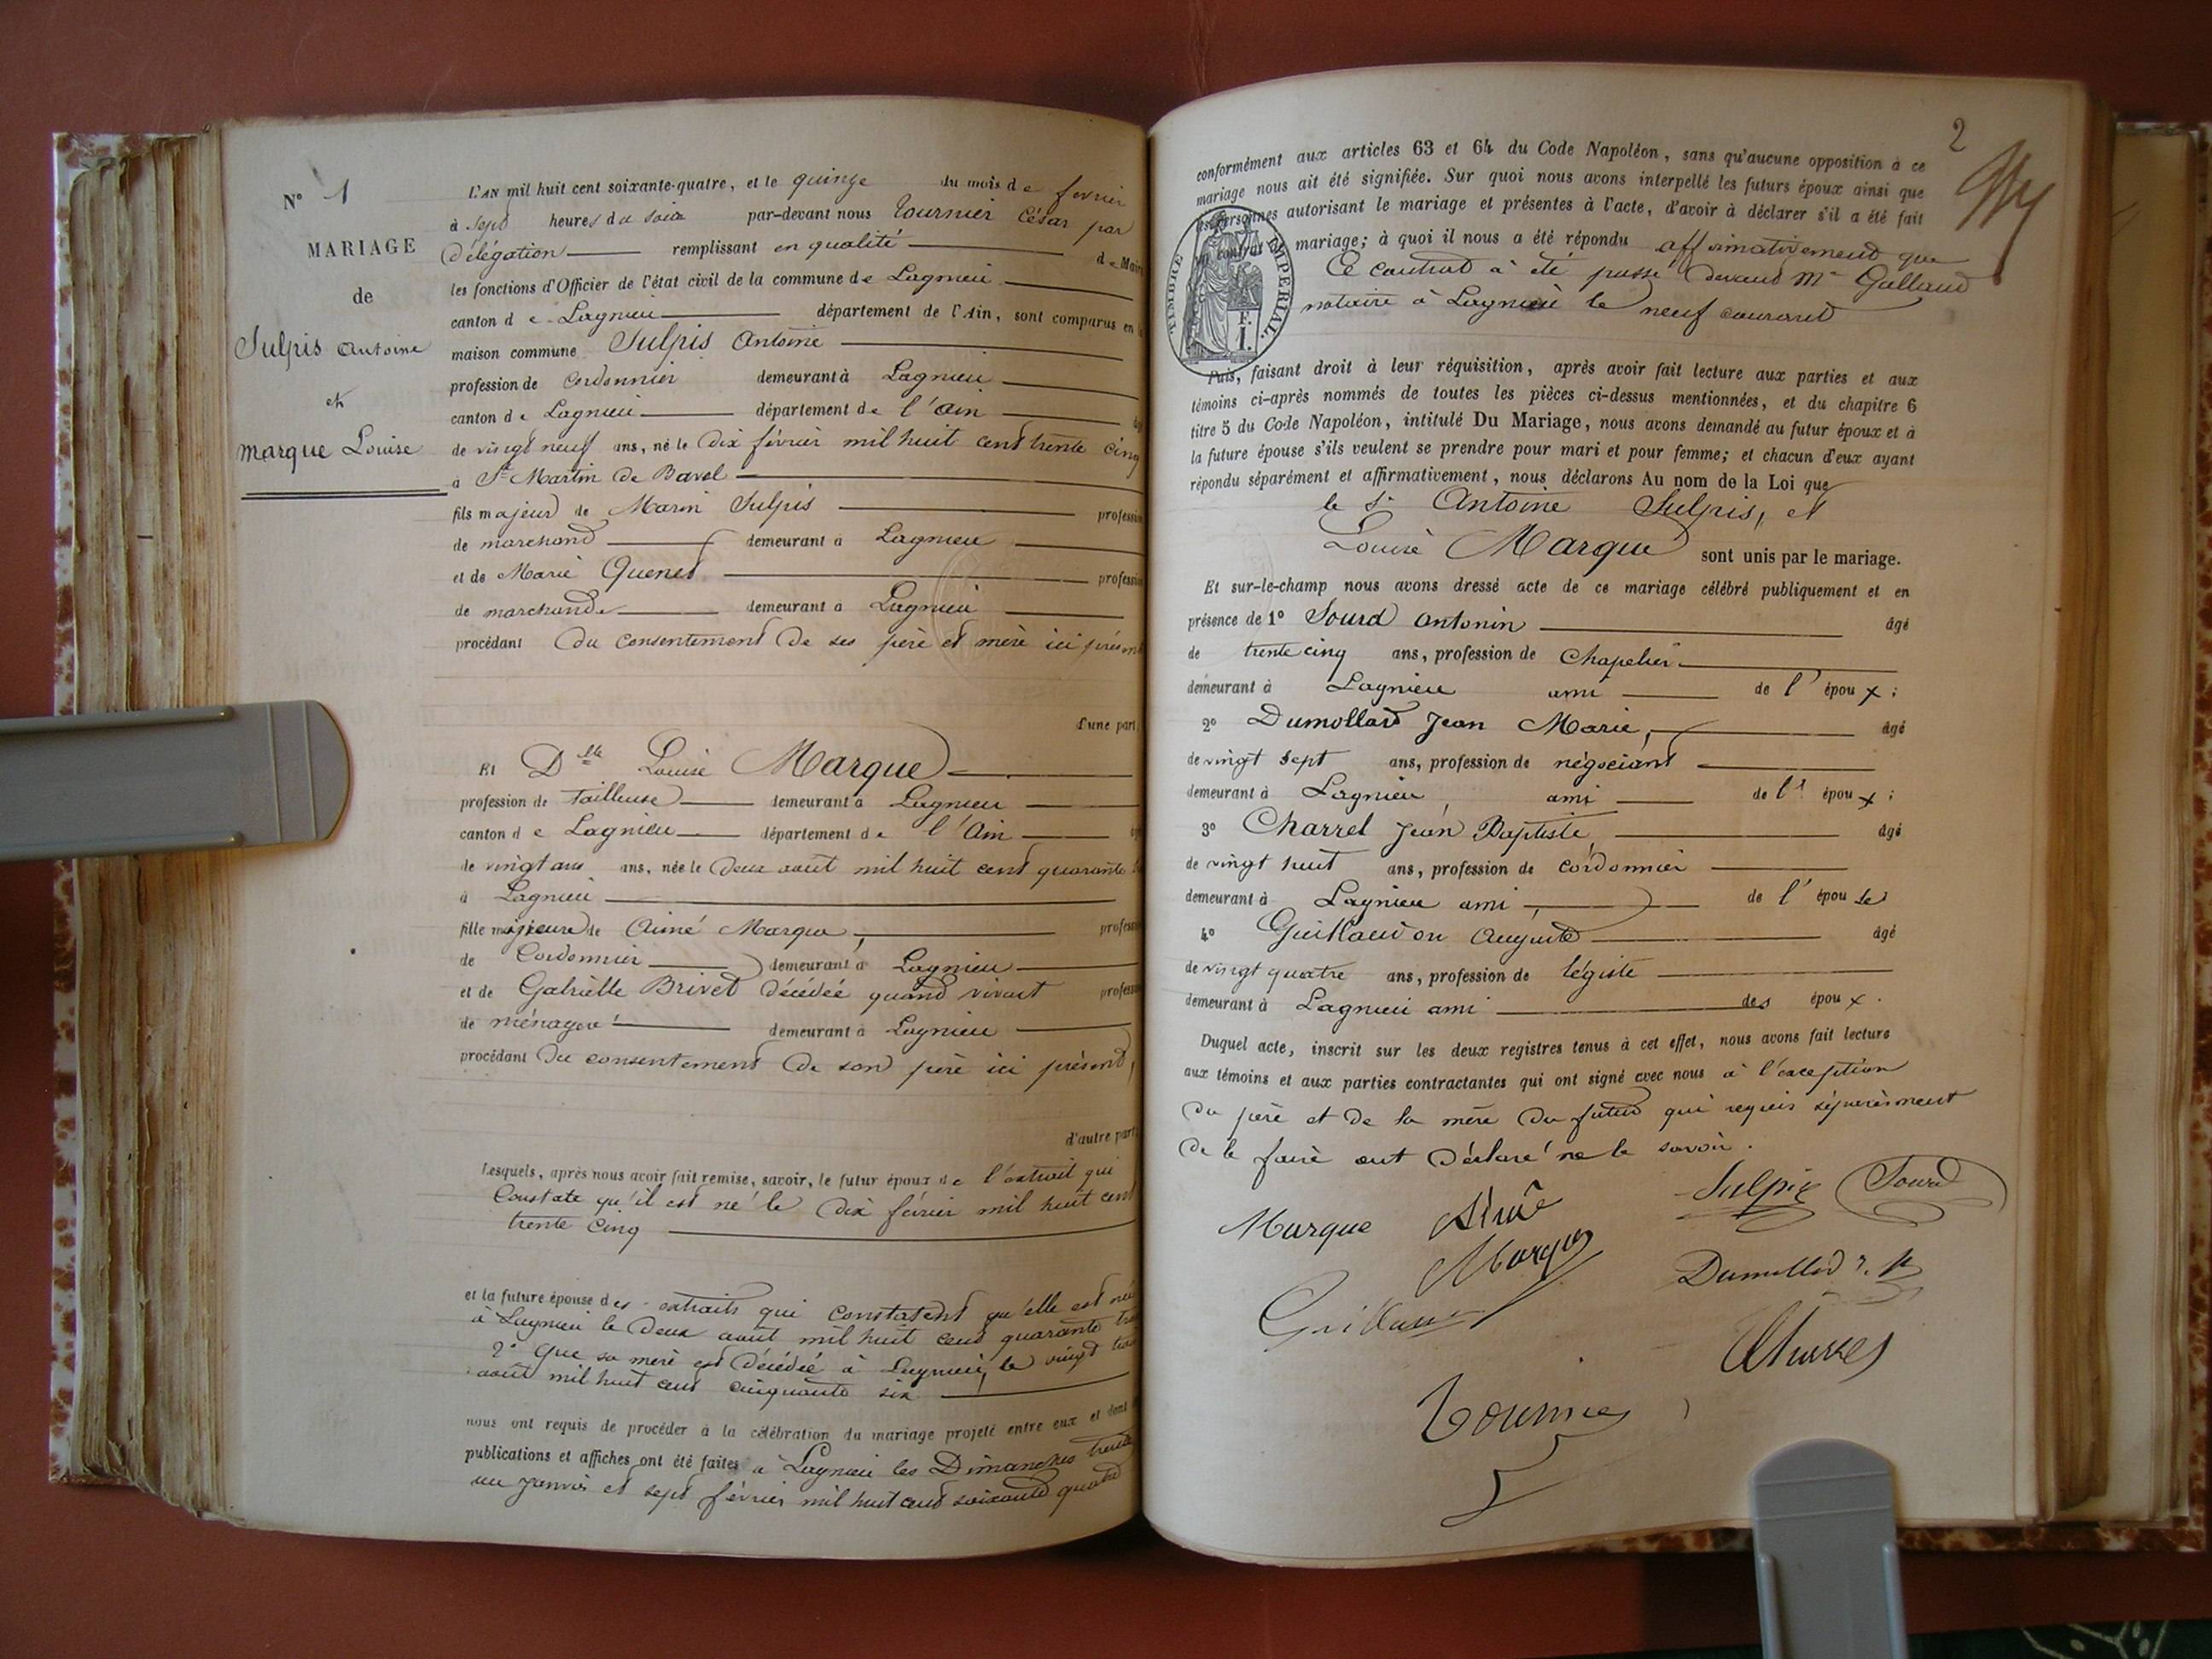 N° 1
MARIAGE
de
Sulpis Antoine
et
Marque Louise
L'AN mil huit cent soixante-quatre, et le quinze du mois de fevrier
à sept heures du soir par-devant nous Tournier César par
délégation remplissant en qualité de Maire
les fonctions d'Officier de l'état civil de la commune de Lagnieu
canton de Lagnieu département de l'Ain, sont comparus en la
maison commune Sulpis Antoine
profession de Cordonnier demeurant à Lagnieu
canton de Lagnieu département de l'Ain
de vingt neuf ans, né le dix février mil huit cent trente cinq
à St Martin de Bavel
fils majeur de Marin Sulpis profession
de marchand demeurant à Lagnieu
et de Marie Quenet profession
de marchande demeurant à Lagnieu
procédant du consentement de ses père et mère ici présent
d'une part
Et Dlle Louise Marque
profession de Tailleuse demeurant à Lagnieu
canton de Lagnieu département de l'Ain
de vingt ans ans, née le deux août mil huit cent quarante
à Lagnieu
fille majeure de Aimé Marque profession
de Cordonnier demeurant à Lagnieu
et de Gabrielle Brivet décédée quand vivait profession
de ménagere demeurant à Lagnieu
procédant du consentement de son père ici présent,
d'autre part
Lesquels, après nous avoir fait remise, savoir, le futur époux de l'extrait qui
Constate qu'il est né le dix février mil huit cent
trente cinq
et la future épouse des extraits qui constatent qu'elle est née
à Lagnieu le deux août mil huit cent quarante
2° que sa mère est décédée à Lagnieu, le vingt
août mil huit cent cinquante six
nous ont requis de procéder à la célébration du mariage projeté entre eux et dont
publications et affiches ont été faites à Lagnieu les Dimanches trente
un janvier et sept février mil huit cent soixante quatre
2
conformément aux articles 63 et 64 du Code Napoléon, sans qu'aucune opposition à ce
mariage nous ait été signifiée. Sur quoi nous avons interpellé les futurs époux ainsi que
les personnes autorisant le mariage et présentes à l'acte, d'avoir à déclarer s'il a été fait
un contrat de mariage; à quoi il nous a été répondu affirmativement que
TIMBRE IMPÉRIAL
F.
1.
Ce contrat à été passé devant Me Galland
notaire à Lagnieu le neuf courant
Puis, faisant droit à leur réquisition, après avoir fait lecture aux parties et aux
témoins ci-après nommés de toutes les pièces ci-dessus mentionnées, et du chapitre 6
titre 5 du Code Napoléon, intitulé Du Mariage, nous avons demandé au futur époux et à
la future épouse s'ils veulent se prendre pour mari et pour femme; et chacun d'eux ayant
répondu séparément et affirmativement, nous déclarons Au nom de la Loi que
le Sr Antoine Sulpis, et
Louise Marque sont unis par le mariage.
Et sur-le-champ nous avons dressé acte de ce mariage célébré publiquement et en
présence de 1° Sourd Antonin âgé
de trente cinq ans, profession de Chapelier
demeurant à Lagnieu ami de l'époux;
2° Dumollard Jean Marie, âgé
de vingt sept ans, profession de négociant
demeurant à Lagnieu, ami de l'époux;
3° Charrel Jean Baptiste, âgé
de vingt huit ans, profession de cordonnier
demeurant à Lagnieu ami de l'épouse
4° Guillaudon Auguste âgé
de vingt quatre ans, profession de légiste
demeurant à Lagnieu ami des époux.
Duquel acte, inscrit sur les deux registres tenus à cet effet, nous avons fait lecture
aux témoins et aux parties contractantes qui ont signé avec nous à l'exception
du père et de la mère du futur qui requis séparément
de le faire ont déclaré ne le savoir.
Sulpis Sourd
Marque Aimé
Marque
Dumollard
Tournier